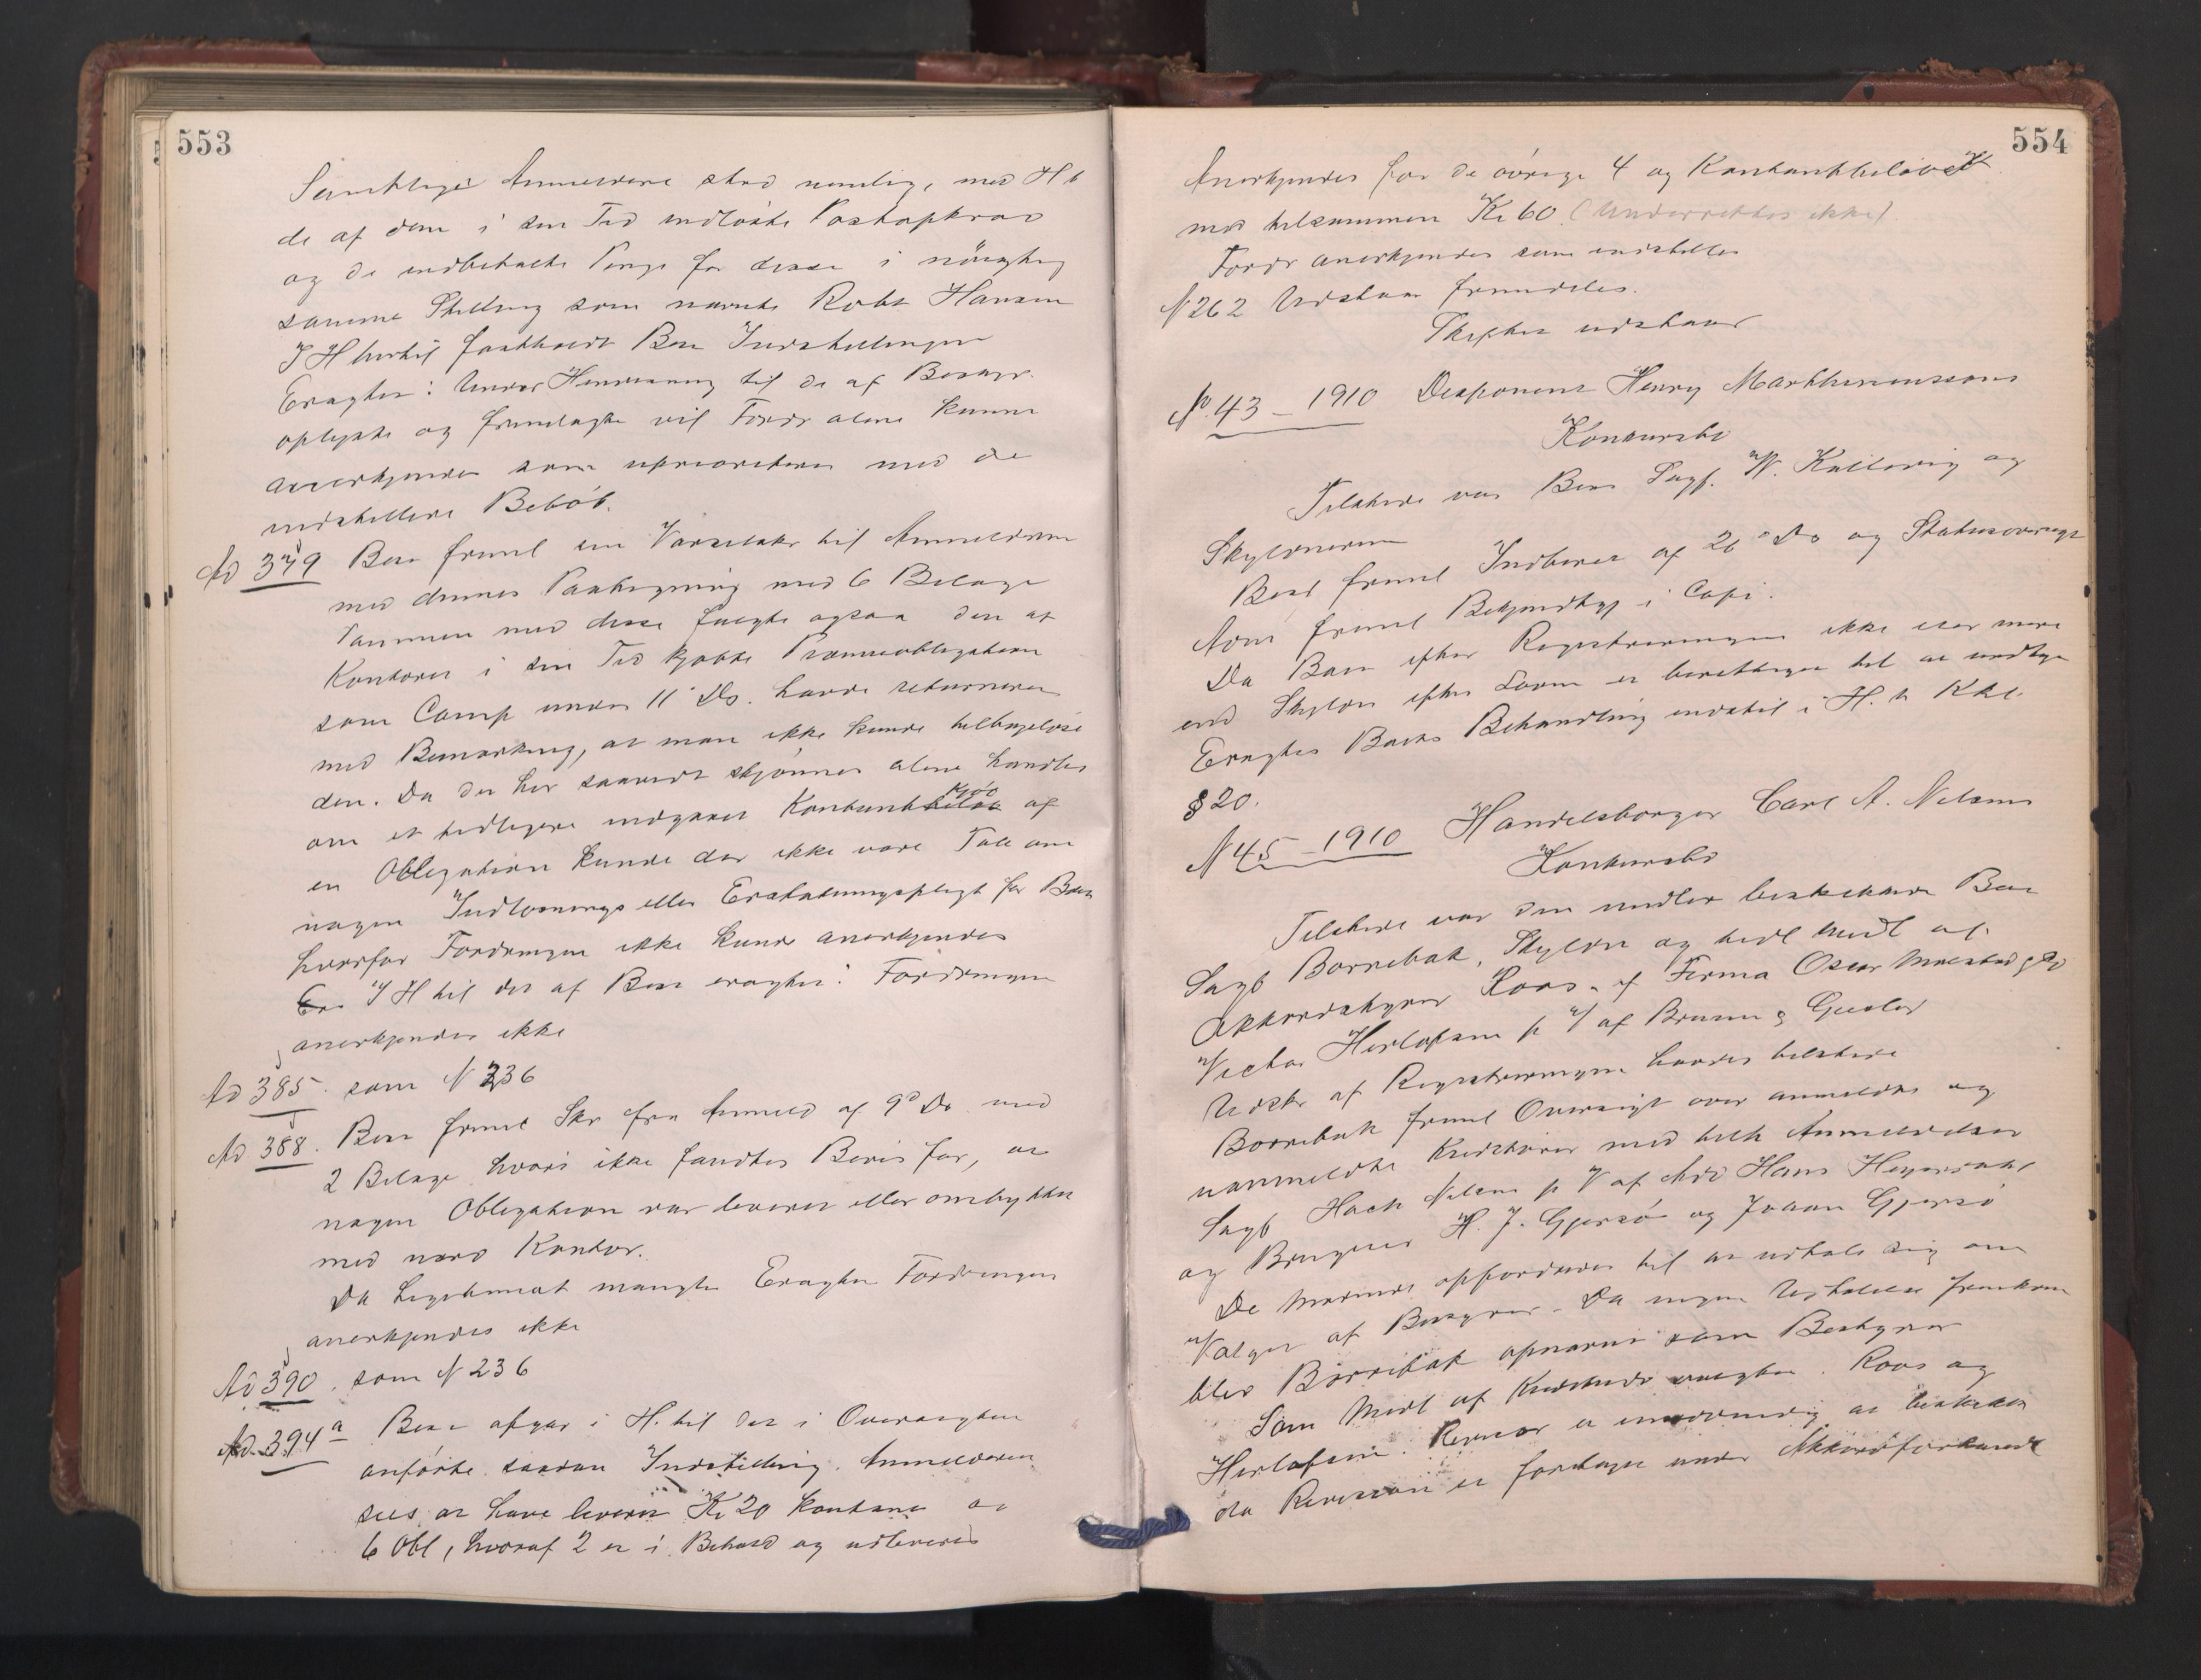 553
Samtlige Anmeldere stod nemlig, med H t
de af dem i sin Tid indløste Postopkrav
og de indbetalte Penge for disse i nøiagtig
samme Stilling som nævnte Robt Hansen
I H hertil fastholdt Bos Indstillingen
Eragtes: Under Henvisning til de af Bosbyr.
oplyste og fremlagte vil Fordr alene kunne
anerkjendes som uprioriteret med de
indstillede Beløb.
Ad 379 Bos freml en Varsel til Anmelderen
med dennes Paategning med 6 Bilage
Sammen med disse fulgte ogsaa den af
Kontoret i sin Tid kjøbte Præmieobligation
som Comp under 11' Ds. havde returneret
med Bemærkning, at man ikke kunde tilbageløse
den. Da det her saavidt skjønnes alene handles
om et tidligere indgaaet Kontantkjøb af
en Obligation kunde der ikke være Tale om
nogen Indløsnings eller Erstatningspligt for Boet
hvorfor Fordringen ikke kunde anerkjendes
I H til det af Bos eragtes: Fordringen
anerkjendes ikke
Ad 385. som N 236
Ad 388. Bos freml Skr fra Anmeld af 9' Ds med
2 Bilage hvori ikke fandtes Bevis for, at
nogen Obligation var leveret eller ombyttet
med nævnte Kontor.
Da Legitimat mangler Eragtes Fordringen
anerkjendes ikke
Ad 390. som N 236
Ad. 394 a Bos afgav i H. til det i Oversigten
anførte saadan Indstilling. Anmelderen
sees at have leveret Kr 20 kontant og
6 Obl, hvoraf 2 er i Behold og udleveres
554
Anerkjendes for de øvrige 4 og Kontantbeløbet
med tilsammen Kr 60 (Underrettes ikke)
Fordr anerkjendes som indstillet
N 262 Udstaar fremdeles.
Skiftet udstaar
No. 43 - 1910 Disponent Henry Marthinussens
Konkursbo
Tilstede var Bos Sagf. W. Kallevig og
Skyldneren
Best freml Indberet af 26' Ds og Statusoversigt
Adm freml Bekjendtg i Copi.
Da Boet efter Registreringen ikke eier mere
end Skyldn efter Loven er berettiget til at undtage
Eragtes Boets Behandling indstil i H. t. Kkl.
§ 20.
N 45 - 1910 Handelsborger Carl A. Nilsens
Konkursbo
Tilstede var den midler bestyrer Bos
Sagf Borrebæk, Skyldn og tidl Medl af
Akkordstyret Roos af Firma Oscar Mælstad & Co
Victor Herlofsen p V af Bruun & Gusler
Udskr af Registreringen havdes tilstede
Borrebæk freml Oversigt over anmeldte og
uanmeldte Kreditorer med tilh Anmeldelser
Sagf Hach Nilsen p V af Adv Hans Heyerdahl
og Brugerne H. J. Gjersø og Johan Gjersø
De mødende opfordredes til at udtale sig om
Valget af Bosbyrer. Da ingen Udtalelse fremkom
blev Borrebæk opnævnt som Bestyrer
Som Medl af Kreditudv valgtes Roos og
Herlofsen. Revisor er unødvendig at beskikke
da Revision er foretaget under Akkordforhandl